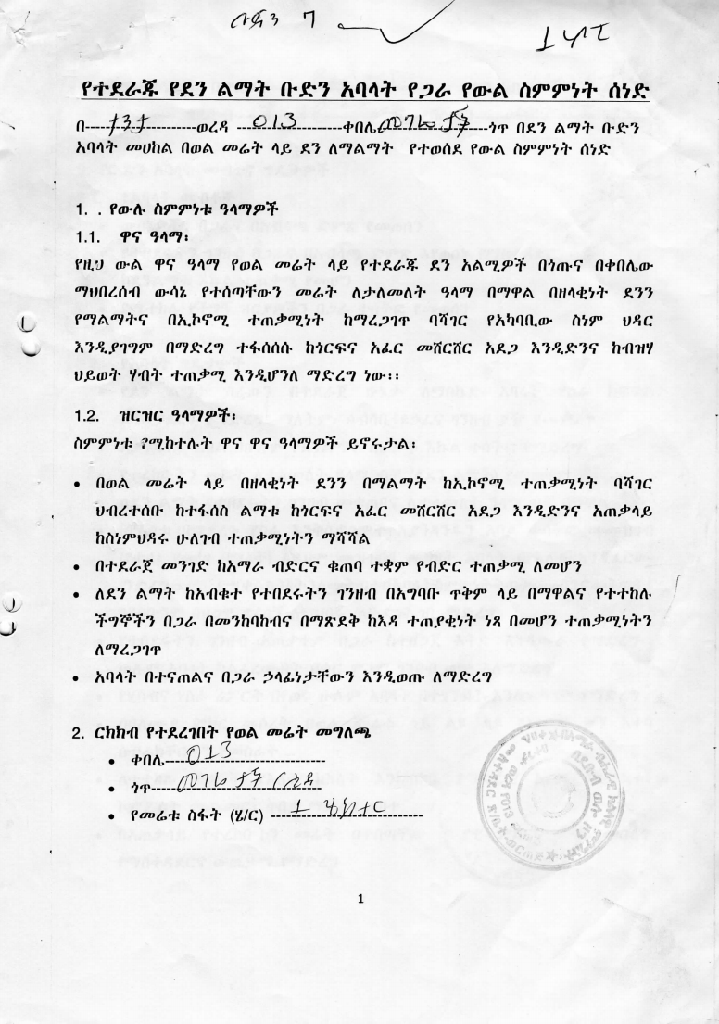 የተደራጁ የደን ልማት ቡድን አባላት የጋራ የውል ስምምነት ሰነድ
በ------ወረዳ ------013------ቀበሌ------ጎጥ በደን ልማት ቡድን
አባላት መሀከል በወል መሬት ላይ ደን ለማልማት የተወሰደ የውል ስምምነት ሰነድ
1. . የውሉ ስምምነቱ ዓላማዎች
1.1. ዋና ዓላማ፡
የዚህ ውል ዋና ዓላማ የወል መሬት ላይ የተደራጁ ደን አልሚዎች በጎጡና በቀበሌው
ማህበረሰብ ውሳኔ የተሰጣቸውን መሬት ለታለመለት ዓላማ በማዋል በዘላቂነት ደንን
የማልማትና በኢኮኖሚ ተጠቃሚነት ከማረጋገጥ ባሻገር የአካባቢው ስነም ህዳር
እንዲያገግም በማድረግ ተፋሰሰሱ ከጎርፍና አፈር መሸርሸር አደጋ እንዲድንና ከብዝሃ
ህይወት ሃብት ተጠቃሚ እንዲሆንለ ማድረግ ነው፡፡
1.2. ዝርዝር ዓላማዎች፡
ስምምነቱ ?ሚከተሉት ዋና ዋና ዓላማዎች ይኖሩታል፡
• በወል መሬት ላይ በዘላቂነት ደንን በማልማት ከኢኮኖሚ ተጠቃሚነት ባሻገር
ህብረተሰቡ ከተፋሰስ ልማቱ ከጎርፍና አፈር መሸርሸር አደጋ እንዲድንና አጠቃላይ
ከስነምህዳሩ ሁለገብ ተጠቃሚነትን ማሻሻል
• በተደራጀ መንገድ ከአማራ ብድርና ቁጠባ ተቋም የብድር ተጠቃሚ ለመሆን
• ለደን ልማት ከአብቁተ የተበደሩትን ገንዘብ በአግባቡ ጥቅም ላይ በማዋልና የተተከሉ
ችግኞችን በጋራ በመንከባከብና በማጽደቅ ከእዳ ተጠያቂነት ነጻ በመሆን ተጠቃሚነትን
ለማረጋገጥ
• አባላት በተናጠልና በጋራ ኃላፊነታቸውን እንዲወጡ ለማድረግ
2. ርክክብ የተደረገበት የወል መሬት መግለጫ
• ቀበሌ 013
• ጎጥ
• የመሬቱ ስፋት (ሄ/ር) 1 ሄክታር
1